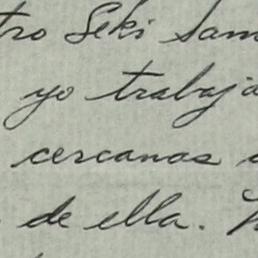 tro Seki Sam
yo trabaja
cercanas
de ella.